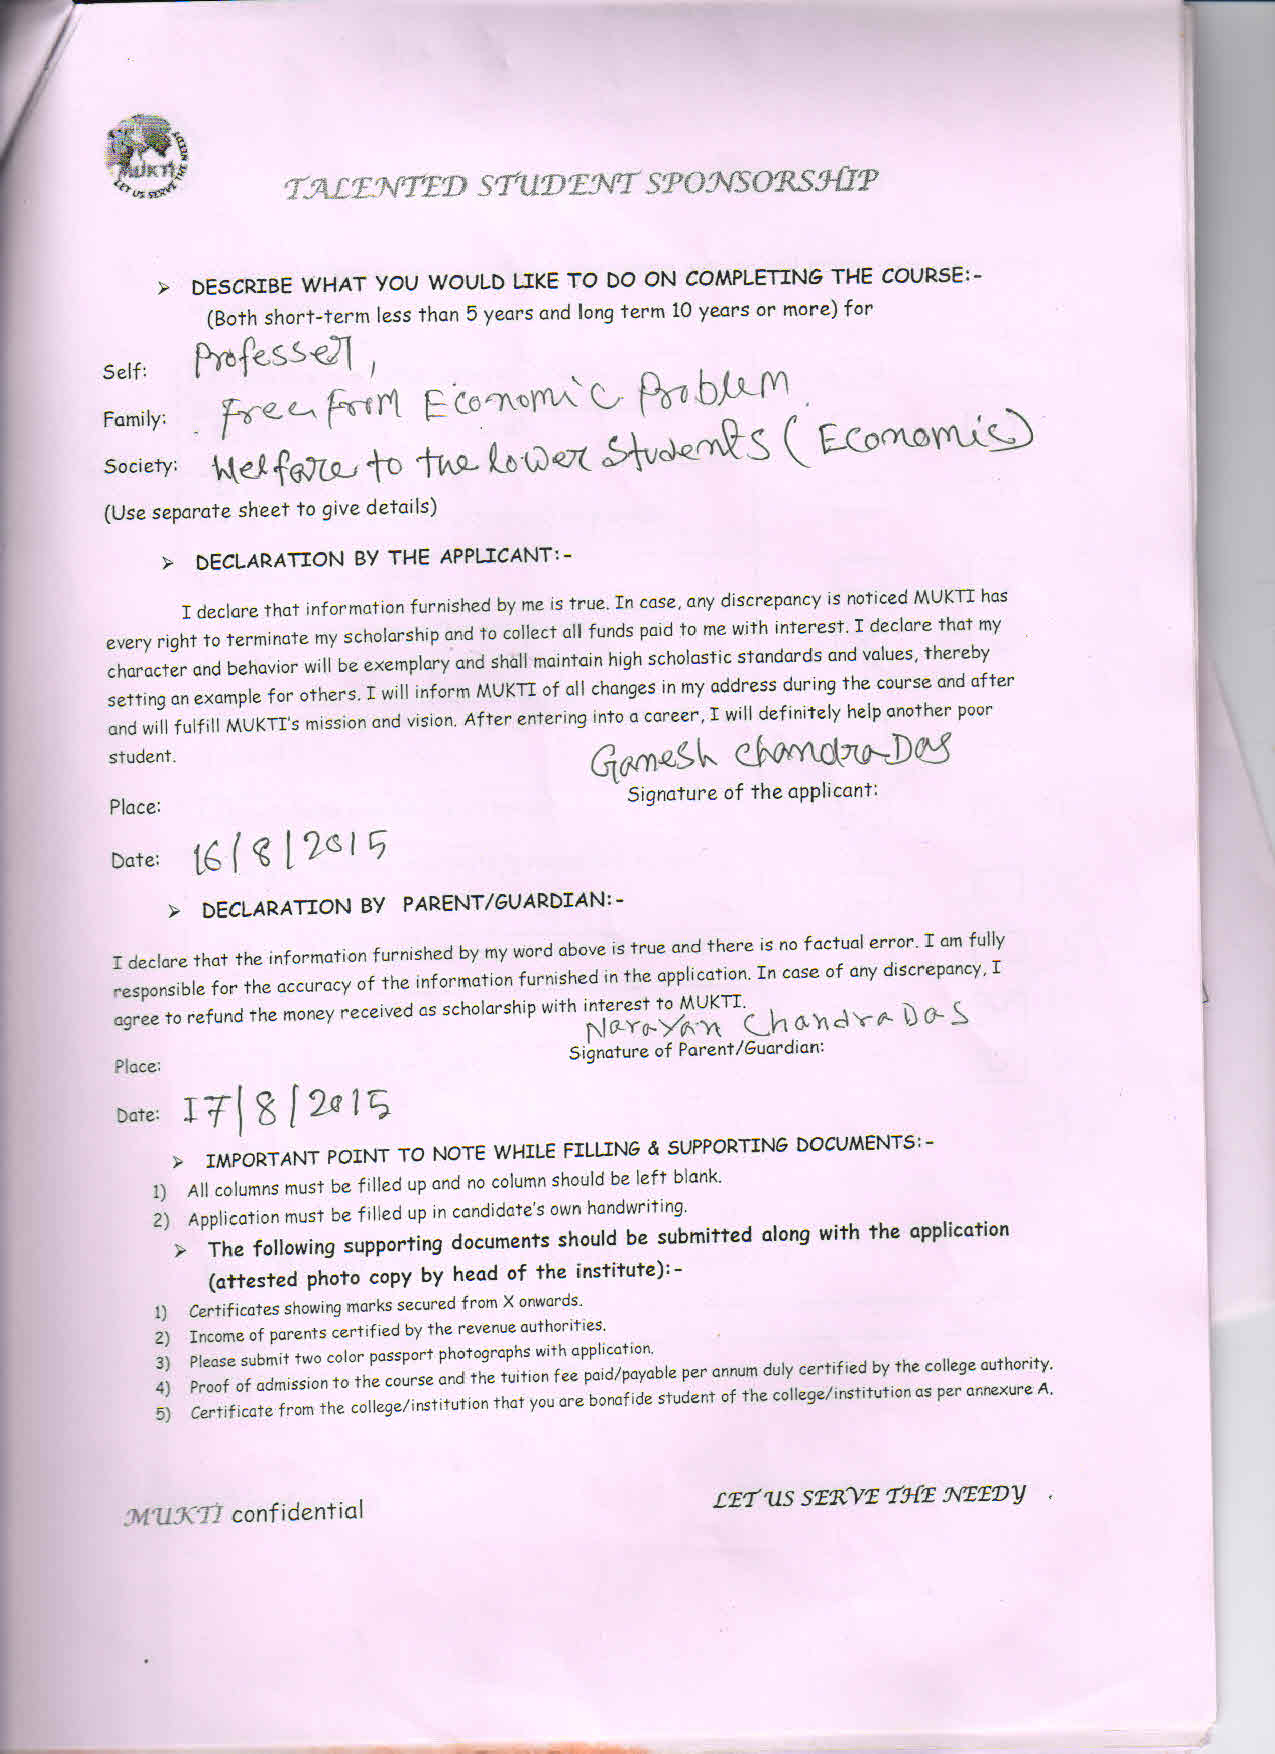 MUKTI
LET US SERVE THE NEEDY
TALENTED STUDENT SPONSORSHIP
➢ DESCRIBE WHAT YOU WOULD LIKE TO DO ON COMPLETING THE COURSE:-
(Both short-term less than 5 years and long term 10 years or more) for
Self: Professer,
Family: Free From Economic Problem.
Society: Welfare to the lower Students (Economic)
(Use separate sheet to give details)
➢ DECLARATION BY THE APPLICANT:-
I declare that information furnished by me is true. In case, any discrepancy is noticed MUKTI has
every right to terminate my scholarship and to collect all funds paid to me with interest. I declare that my
character and behavior will be exemplary and shall maintain high scholastic standards and values, thereby
setting an example for others. I will inform MUKTI of all changes in my address during the course and after
and will fulfill MUKTI's mission and vision. After entering into a career, I will definitely help another poor
student.
Ganesh Chandra Das
Signature of the applicant:
Place:
Date: 16/8/2015
➢ DECLARATION BY PARENT/GUARDIAN:-
I declare that the information furnished by my word above is true and there is no factual error. I am fully
responsible for the accuracy of the information furnished in the application. In case of any discrepancy, I
agree to refund the money received as scholarship with interest to MUKTI.
Narayan Chandra Das
Signature of Parent/Guardian:
Place:
Date: 17/8/2015
➢ IMPORTANT POINT TO NOTE WHILE FILLING & SUPPORTING DOCUMENTS:-
1) All columns must be filled up and no column should be left blank.
2) Application must be filled up in candidate's own handwriting.
➢ The following supporting documents should be submitted along with the application
(attested photo copy by head of the institute):-
1) Certificates showing marks secured from X onwards.
2) Income of parents certified by the revenue authorities.
3) Please submit two color passport photographs with application.
4) Proof of admission to the course and the tuition fee paid/payable per annum duly certified by the college authority.
5) Certificate from the college/institution that you are bonafide student of the college/institution as per annexure A.
MUKTI confidential
LET US SERVE THE NEEDY